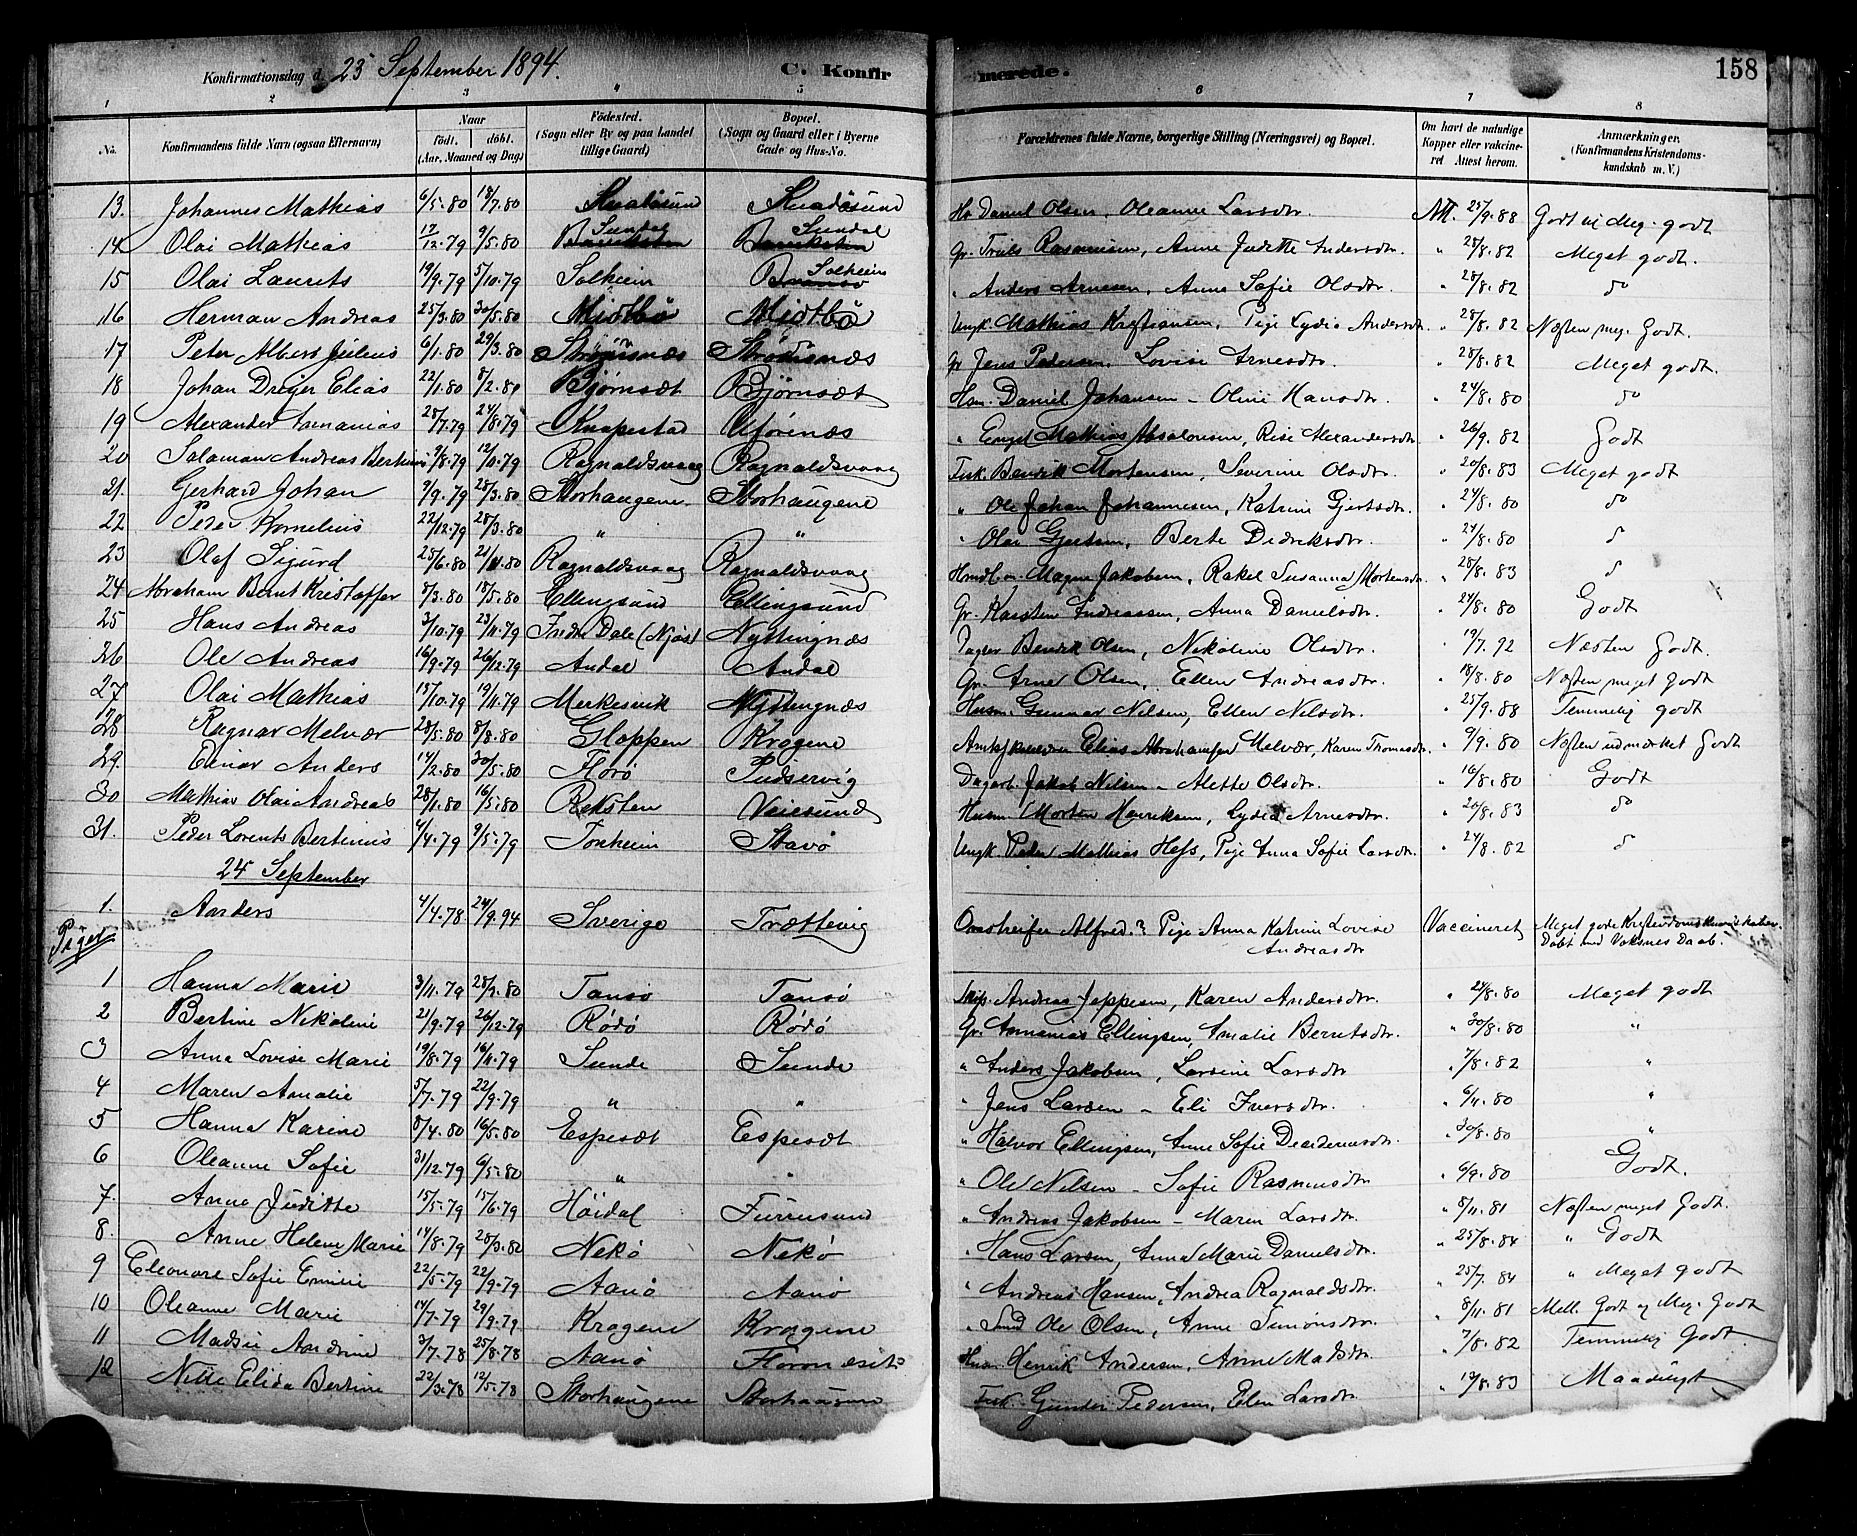 Konfirmationsdag d. 23 September 1894. C. Konfirmerede. 158
1 2 3 4 5 6 7 8
No.
Konfirmandens fulde Navn (ogsaa Efternavn)
Naar født. døbt. (Aar, Maaned og Dag)
Fødested. (Sogn eller By og paa Landet tillige Gaard)
Bopæl. (Sogn og Gaard eller i Byerne Gade og Hus-No.
Forældrenes fulde Navne, borgerlige Stilling (Næringsvei) og Bopæl.
Om havt de naturlige Kopper eller vaccineret Attest herom.
Anmærkninger. (Konfirmandens Kristendomskundskab m. V.)
13. Johannes Mathias 6/5.80 18/7.80 Daniel Olsen, Oleanne Larsdtr. 25/9.88 Godt
14 Olai Mathias 12/12.79 9/5.80 Sundal Sundal Gr. Rasmussen, Anne Juditte Andersdtr. " 28/8.82 Meget godt.
15 Olai Laurits 19/9.79 5/10.79 Solheim Solheim " Anders Arnesen, Anne Sofie Olsdtr. " 28/8.82 do
16 Herman Andreas 25/3.80 30/5.80 Midtbø Midtbø Ungk. Mathias Kristiansen, Pige Lydia Andersdtr " 28/8.82 Næsten meg. Godt.
17 Peter Albert Julius 6/1.80 29/3.80 Gr Jens Pedersen, Lovise Arnesdtr. " 28/8.82 Meget godt.
18 Johan Dreyer Elias 22/1.80 8/2.80 Bjørnsæt Bjørnsæt Hsm. Daniel Johansen - Oline Hansdtr. " 24/8.80 do
19 Alexander Ananias 28/7.79 24/8.79 Knapestad " Engel Mathias Absalonsen, Alexandersdtr " 26/9.82 Godt
20 Salaman Andreas Bertinus 9/8.79 12/10.79 Ragnaldsvaag Ragnaldsvaag Bendik Mortensen, Severine Olsdtr. " 20/8.83 Meget godt
21. Gerhard Johan 9/9.79 28/3.80 Storhaugene Storhaugene " Ole Johan Johannesen, Katrine Gjertsdtr. " 24/8.80 do
22 Peder Kornelius 22/12.79 28/3.80 " " " Olai Gjertsen, Berte Didriksdtr. " 24/8.80
23 Olaf Sigurd 25/6.80 21/11.80 Ragnaldsvaag Ragnaldsvaag Magne Jakobsen, Rakel Susanna Mortensdtr " 28/8.83
24 Abraham Bernt Kristoffer 8/3.80 18/5.80 Ellingsund Ellingsund Gr. Karsten Andreassen, Anna Danielsdtr. " 24/8.80 Godt
25 Hans Andreas 3/10.79 23/11.79 Indre Dale (Njøs) Nyttingnæs Bendik Olsen, Nikoline Olsdtr. " 19/7.92 Næsten Godt.
26 Ole Andreas 16/9.79 26/12.79 Andal Andal Gr. Arne Olsen, Ellen Andreasdtr. " 18/8.80 Næsten meget godt
27 Olai Mathias 15/10.79 19/11.79 Merkesvik Nyttingnæs Husm. Gunnar Nilsen, Ellen Nilsdtr. " 25/9.88 Temmelig godt
28 Ragnar Melvær 28/5.80 8/8.80 Gloppen Kragene Elias Abrahamsen Melvær, Karen Thomasdtr. " 9/9.80 Næsten udmærket Godt
29. Einar Anders 14/2.80 30/5.80 Florø Dagarb. Jakob Nilsen - Alette Olsdtr. " 16/8.80 Godt
30 Mathias Olai Andreas 28/1.80 16/5.80 Reksten Vaiesund Husm Morten Henriksen, Lydia Arnesdtr. " 20/8.83 do
31. Peder Lorents Bertinius 4/4.79 9/5.79 Tonheim Stavø Ungk Peder Mathias Hess, Pige Anna Sofie Larsdtr. " 24/8.82
25 September
1. Anders 4/4.78 24/9.94 Sverige Trættevig Omstreifer Alfred ? Pige Anna Katrine Lovise Vaccineret Meget gode
Andreasdtr Døbt med Voksnes Daab.
Piger
1 Hanna Marie 3/11.79 28/3.80 Tansø Tansø Andreas Jeppesen, Karen Andersdtr. " 24/8.80 Meget godt
2 Bertine Nikoline 21/9.79 26/12.79 Rødø Rødø Gr. Annanias Ellingsen, Amalie Berntsdtr. " 30/8.80 "
3 Anna Lovise Marie 19/8.79 16/11.79 Sunde Sunde " Anders Jakobsen, Larsine Larsdtr " 7/8.82 "
4 Maren Amalie 5/7.79 22/9.79 " " " Jens Larsen - Eli Iversdtr. " 6/11.80 "
5 Hanna Karine 8/4.80 16/5.80 Espesæt Espesæt " Halvor Ellingsen, Anne Sofie " 30/8.80 "
6 Oleanne Sofie 31/12.79 6/5.80 " " " Ole Nilsen - Sofie Rasmusdtr " 6/9.80 Godt.
7. Anna Juditte 15/5.79 15/6.79 Høidal Furresund " Andreas Jakobsen - Maren Larsdtr. " 8/11.81 Næsten meget Godt.
8. Anne Helene Marie 14/8.79 28/3.82 Nekø Nekø " Hans Larsen, Anna Marie Danielsdtr. " 25/8.84 " Godt
9 Eleonore Sofie Emilie 22/5.79 22/9.79 Aanø Aanø " Andreas Hansen, Andrea Ragnaldsdtr. " 25/7.84 " Meget godt
10 Oleanne Marie 14/7.79 29/9.79 Kragene Kragene " Ole Olsen, Anne Simonsdtr. " 8/11.81 Mell. Godt og Meg. Godt
11 Madsie Andrine 3/7.78 25/8.78 Aanø Husm. Henrik Andersen, Anne Madsdtr. " 7/8.82 Temmelig Godt.
12 Elida Bertine 22/3.78 12/5.78 Storhaugene Storhaugene Gunder Pedersen, Elen Larsdtr " 19/8.83 Maadeligt